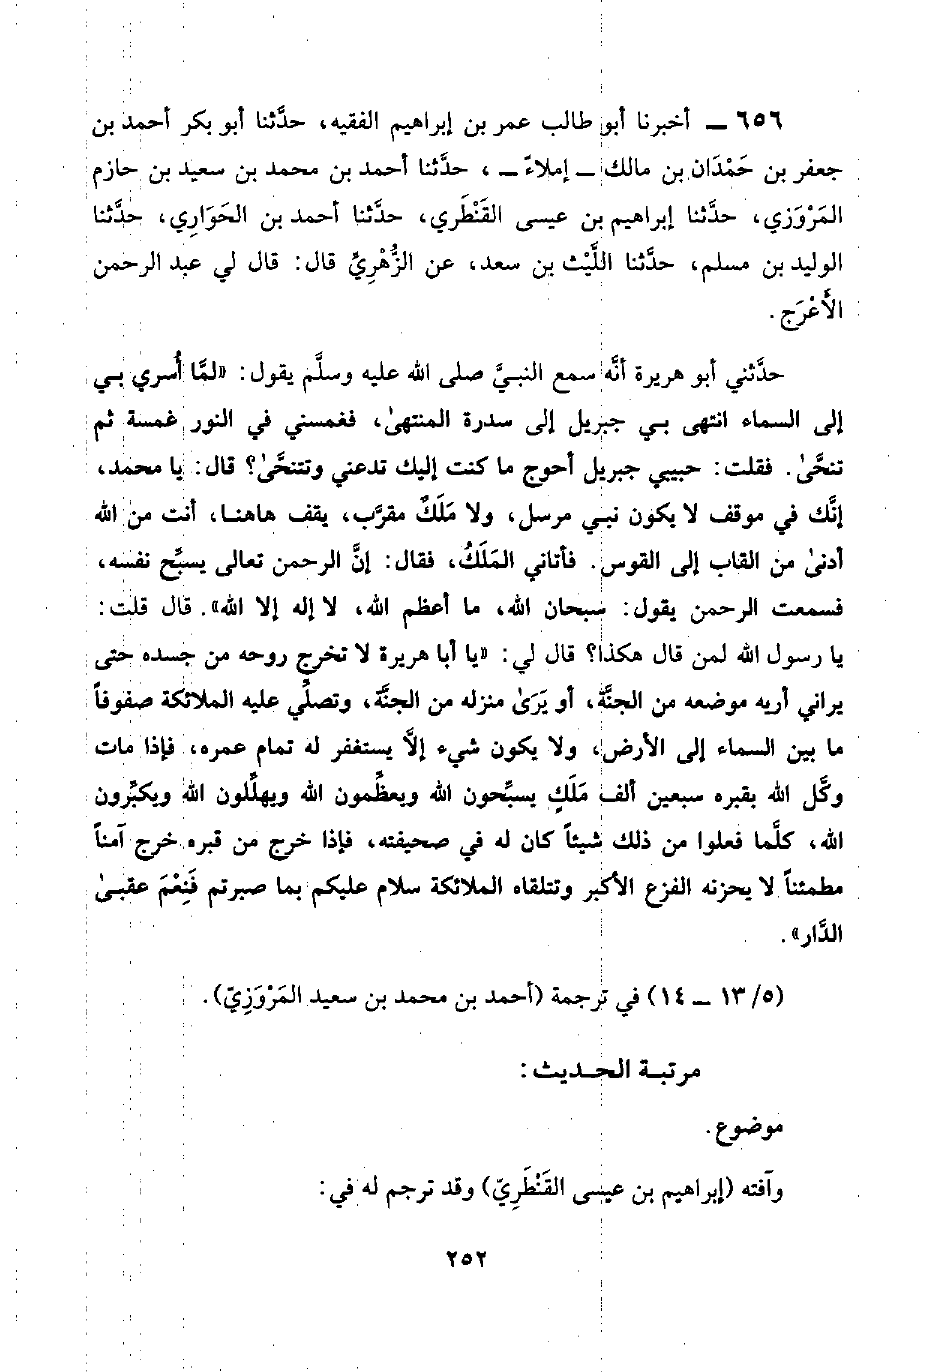 ٦٥٦ ــ أخبرنا أبو طالب عمر بن إبراهيم الفقيه، حدَّثنا أبو بكر أحمد بن
جعفر بن حَمْدَان بن مالك ــ إملاءً ــ ، حدَّثنا أحمد بن محمد بن سعيد بن حازم
المَرْوَزي، حدَّثنا إبراهيم بن عيسى القَنْطَري، حدَّثنا أحمد بن الحَوَارِي، حدَّثنا
الوليد بن مسلم، حدَّثنا اللَّيْث بن سعد، عن الزُّهْرِيِّ قال: قال لي عبد الرحمن
الأَعْرَج.
حدَّثني أبو هريرة أنَّه سمع النبيَّ صلى الله عليه وسلَّم يقول: «لمَّا أُسري بي
إلى السماء انتهى بي جبريل إلى سدرة المنتهىٰ، فغمسني في النور غمسة ثم
تنحَّىٰ. فقلت: حبيبي جبريل أحوج ما كنت إليك تدعني وتتنحَّىٰ؟ قال: يا محمد،
إنَّك في موقف لا يكون نبي مرسل، ولا مَلَكٌ مقرَّب، يقف هاهنا، أنت من الله
أدنىٰ من القاب إلى القوس. فأتاني المَلَكُ، فقال: إنَّ الرحمن تعالى يسبِّح نفسه،
فسمعت الرحمن يقول: سبحان الله، ما أعظم الله، لا إله إلا الله». قال قلت:
يا رسول الله لمن قال هكذا؟ قال لي: «يا أبا هريرة لا تخرج روحه من جسده حتى
يراني أريه موضعه من الجنَّة، أو يَرَىٰ منزله من الجنَّة، وتصلِّي عليه الملائكة صفوفاً
ما بين السماء إلى الأرض، ولا يكون شيء إلاَّ يستغفر له تمام عمره، فإذا مات
وكَّل الله بقبره سبعين ألف مَلَكٍ يسبِّحون الله ويعظِّمون الله ويهلِّلون الله ويكبِّرون
الله، كلَّما فعلوا من ذلك شيئاً كان له في صحيفته، فإذا خرج من قبره خرج آمناً
مطمئناً لا يحزنه الفزع الأكبر وتتلقاه الملائكة سلام عليكم بما صبرتم فَنِعْمَ عقبىٰ
الدَّار».
(٥/ ١٣ ــ ١٤) في ترجمة (أحمد بن محمد بن سعيد المَرْوَزِيّ).
مرتبة الحديث:
موضوع.
وآفته (إبراهيم بن عيسى القَنْطَرِيّ) وقد ترجم له في:
٢٥٢